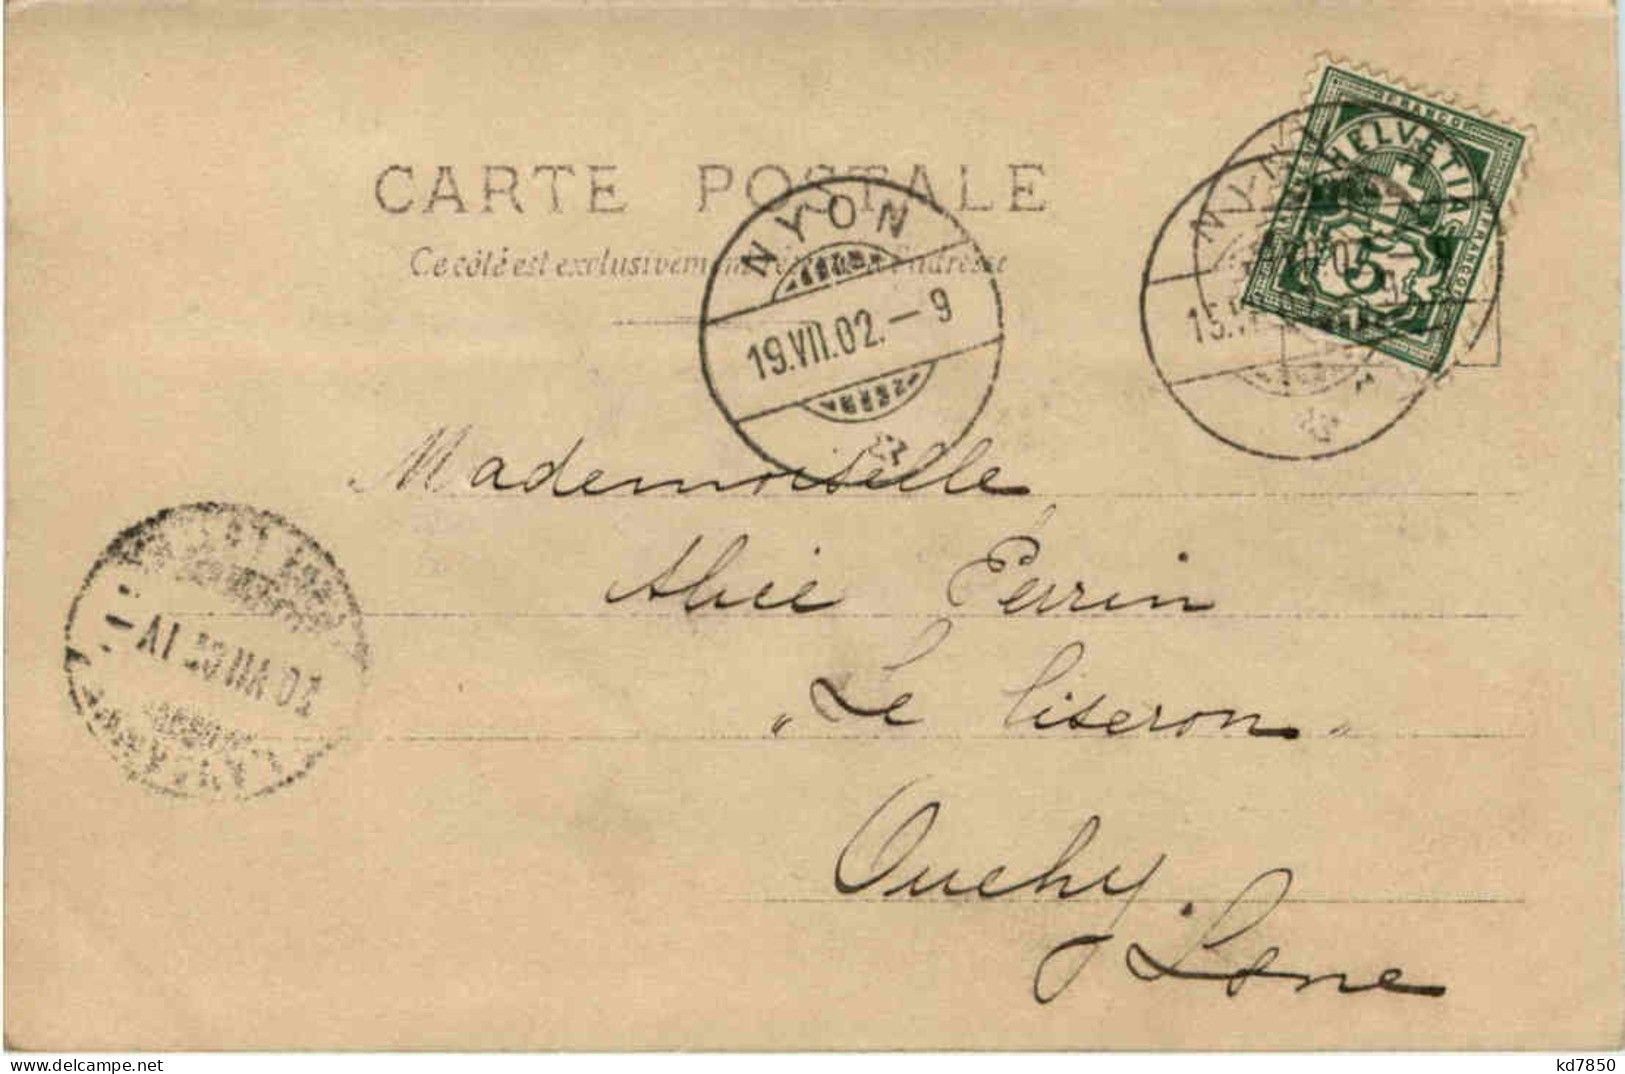 CARTE POSTALE
Ce côté est exclusivement à l'adresse
NYON
19.VII.02.-9
NYON
FRANCO
HELVETIA
FRANCO
5
Mademoiselle
Alice Perrin
"Le liseron"
Ouchy
s/Lsne
kd7850